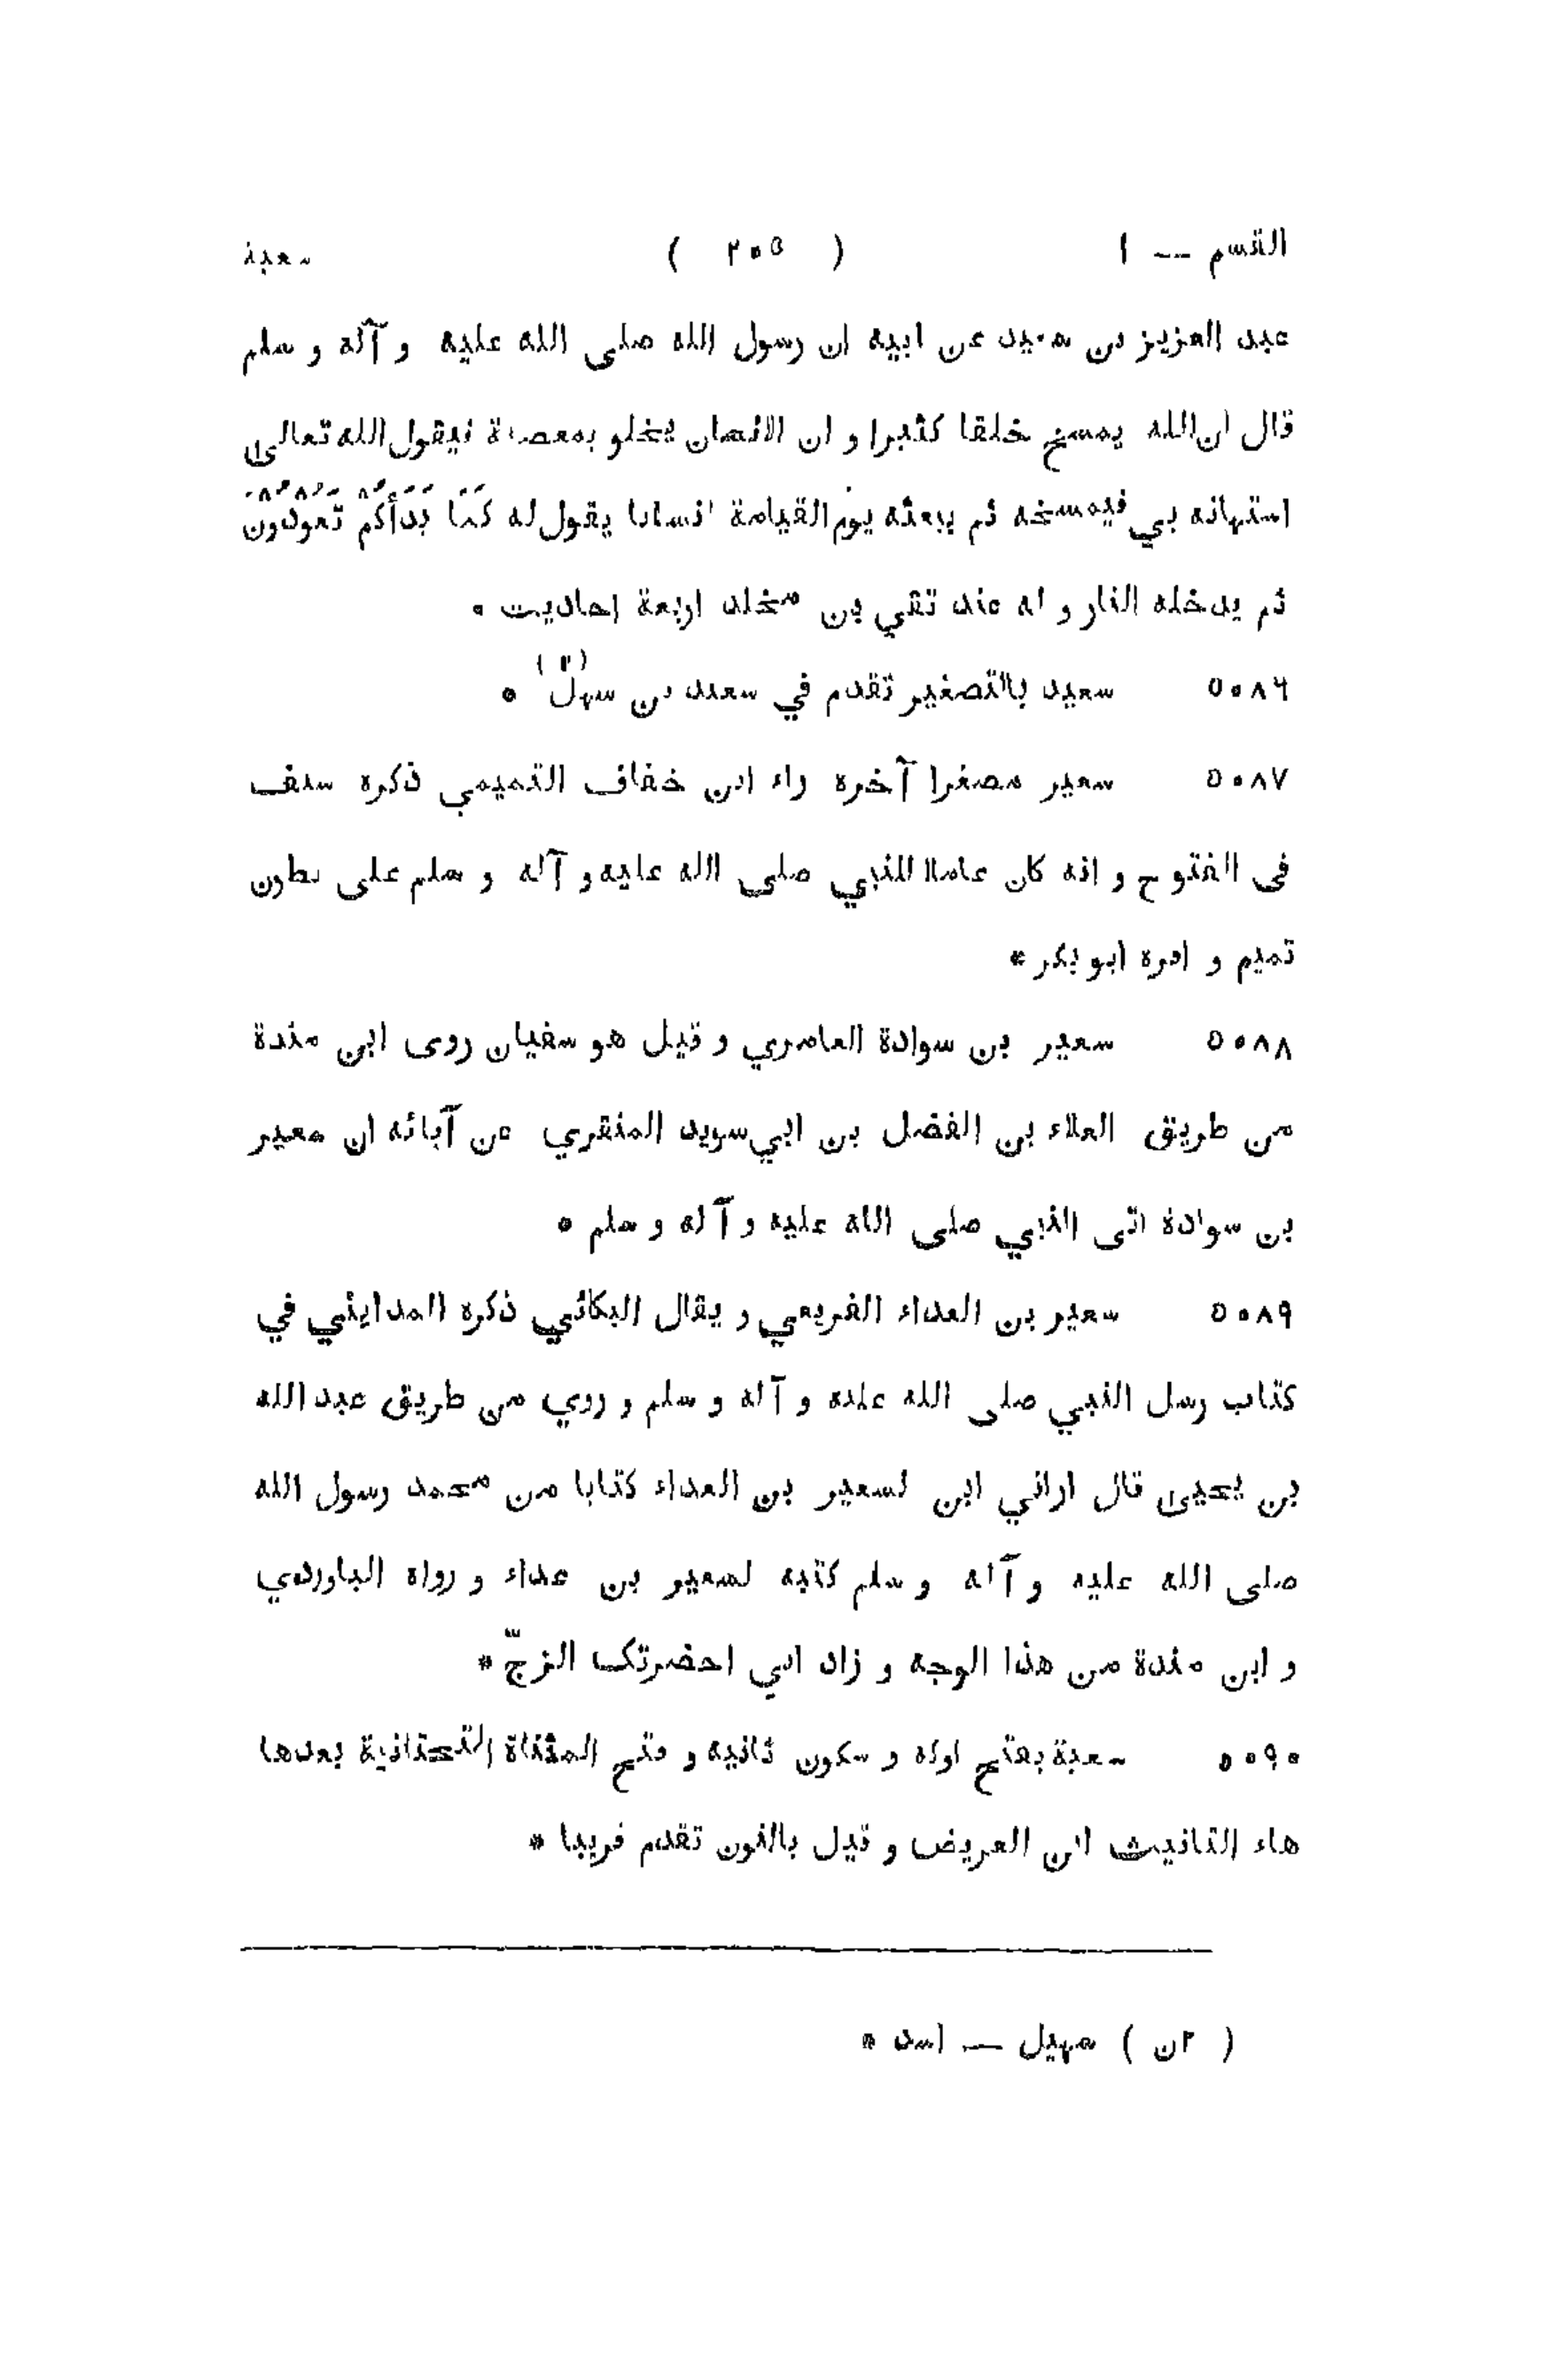 القسم — ١ ( ٢٠٥ ) سعية
عبد العزيز بن سعيد عن ابيه ان رسول الله صلى الله عليه و آله و سلم
قال ان الله يمسخ خلقا كثيرا و ان الانسان يخلو بمعصية فيقول الله تعالى
استهانه بي فيمسخه ثم يبعثه يوم القيامة انسانا يقول له كَمَا بَدَأَكُمْ تَعُودُونَ
ثم يدخله النار و له عند تقي بن مخلد اربعة احاديث *
٥٠٨٦ سعيد بالتصغير تقدم في سعد بن سهل (٢) *
٥٠٨٧ سعير مصغرا آخره راء ابن خفاف التميمي ذكره سيف
فى الفتوح و انه كان عاملا للنبي صلى الله عليه و آله و سلم على بطون
تميم و امره ابو بكر *
٥٠٨٨ سعير بن سوادة العامري و قيل هو سفيان روى ابن مندة
من طريق العلاء بن الفضل بن ابي سويد المنقري عن آبائه ان سعير
بن سوادة اتى النبي صلى الله عليه و آله و سلم *
٥٠٨٩ سعير بن العداء الفريعي و يقال البكائي ذكره المدايني في
كتاب رسل النبي صلى الله عليه و آله و سلم و روي من طريق عبد الله
بن يحيى قال اراني ابن لسعير بن العداء كتابا من محمد رسول الله
صلى الله عليه و آله و سلم كتبه لسعير بن عداء و رواه الباوردي
و ابن مندة من هذا الوجه و زاد اني احضرتك الزجّ *
٥٠٩٠ سعية بفتح اوله و سكون ثانيه و فتح المثناة التحتانية بعدها
هاء التانيث ابن العريض و قيل بالنون تقدم قريبا *
( ٢ن ) سهيل — اسد *